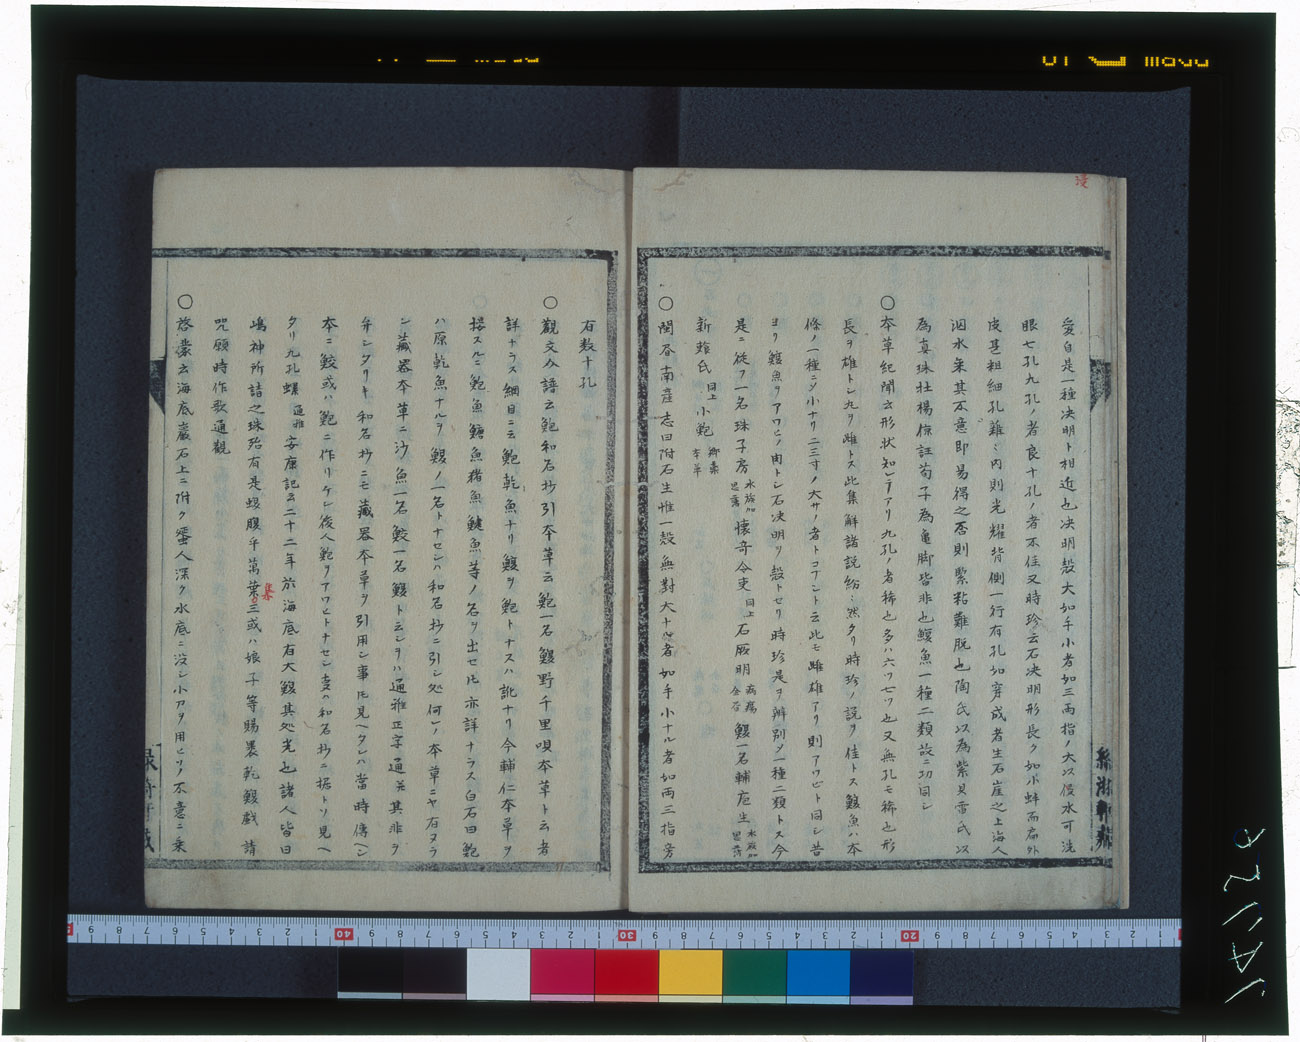 愛自是一種决明ト相近也决明殻大如手小者如三两指ノ大以侵水可洗
眼七孔九孔ノ者良十孔ノ者不佳又時珍云石决明形長ク如小蚌而扁外
皮甚粗細孔雜々内則光耀背側一行有孔如穿成者生石崖之上海人
泅水乗其不意即易得之否則緊粘難脱也陶氏以為紫貝雷氏以
為真珠牡楊倞註荀子為龜脚皆非也鰒魚一種二類故ニ功同シ
○本草紀聞云形状知レテアリ九孔ノ者稀也多ハ六ツ七ツ也又無孔モ稀也形
長ヲ雄トシ九ヲ雌トス此集解諸説紛々然タリ時珍ノ説ヲ佳トス鰒魚ハ本
條ノ一種ニメ小ナリ二三寸ノ大サノ者トコブシト云此モ雌雄アリ則アワビト同シ昔
ヨリ鰒魚ヲアワビノ肉トシ石决明ヲ殻トセリ時珍是ヲ辨別メ一種二類トス今
是ニ從フ一名珠子房 水族加恩簿 懐奇令吏 同上 石厥明 鰒一名輔庖生 水族加恩簿
新餘氏 同上 小鮑 郷薬本草
○閩各南産志曰附石生惟一殻無對大ナル者如手小ナル者如両三指旁
右数十孔
○觀文久譜云鮑和名抄引本草云鮑一名鰒野千里唄本草ト云者
詳ナラス綱目ニ云鮑乾魚ナリ鰒ヲ鮑トナスハ訛ナリ今輔仁本草ヲ
接スルニ鮑魚鱐魚猪魚鯪魚等ノ名ヲ出セ𪜈亦詳ナラス白石曰鮑
ハ原乾魚ナルヲ鰒ノ一名トナセシハ和名抄ニ引シ処何レノ本草ニヤ有ヌラ
ン藏器本草ニ沙魚一名鮫一名鰒ト云シヲハ通雅正字通其非ヲ
弁シタリキ和名抄ニモ藏器本草ヲ引用シ事𪜈見ヘタレハ當時傳ヘシ
本ニ鮫或ハ鮑ニ作リケン後人鮑ヲアワビトナセシ事ハ和名抄ニ据トソ見ヘ
タリ九孔螺 通雅 安康記云二十二年於海底有大鰒其処光也諸人皆曰
嶋神所詰之珠殆有是鰒腹乎萬葉集三或ハ娘子等賜裹乾鰒戯請
咒願時作歌通觀
○啓蒙云海底巖石上ニ附ク蜑人深ク水底ニ没シ小刀ヲ用ヒソノ不意ニ乗